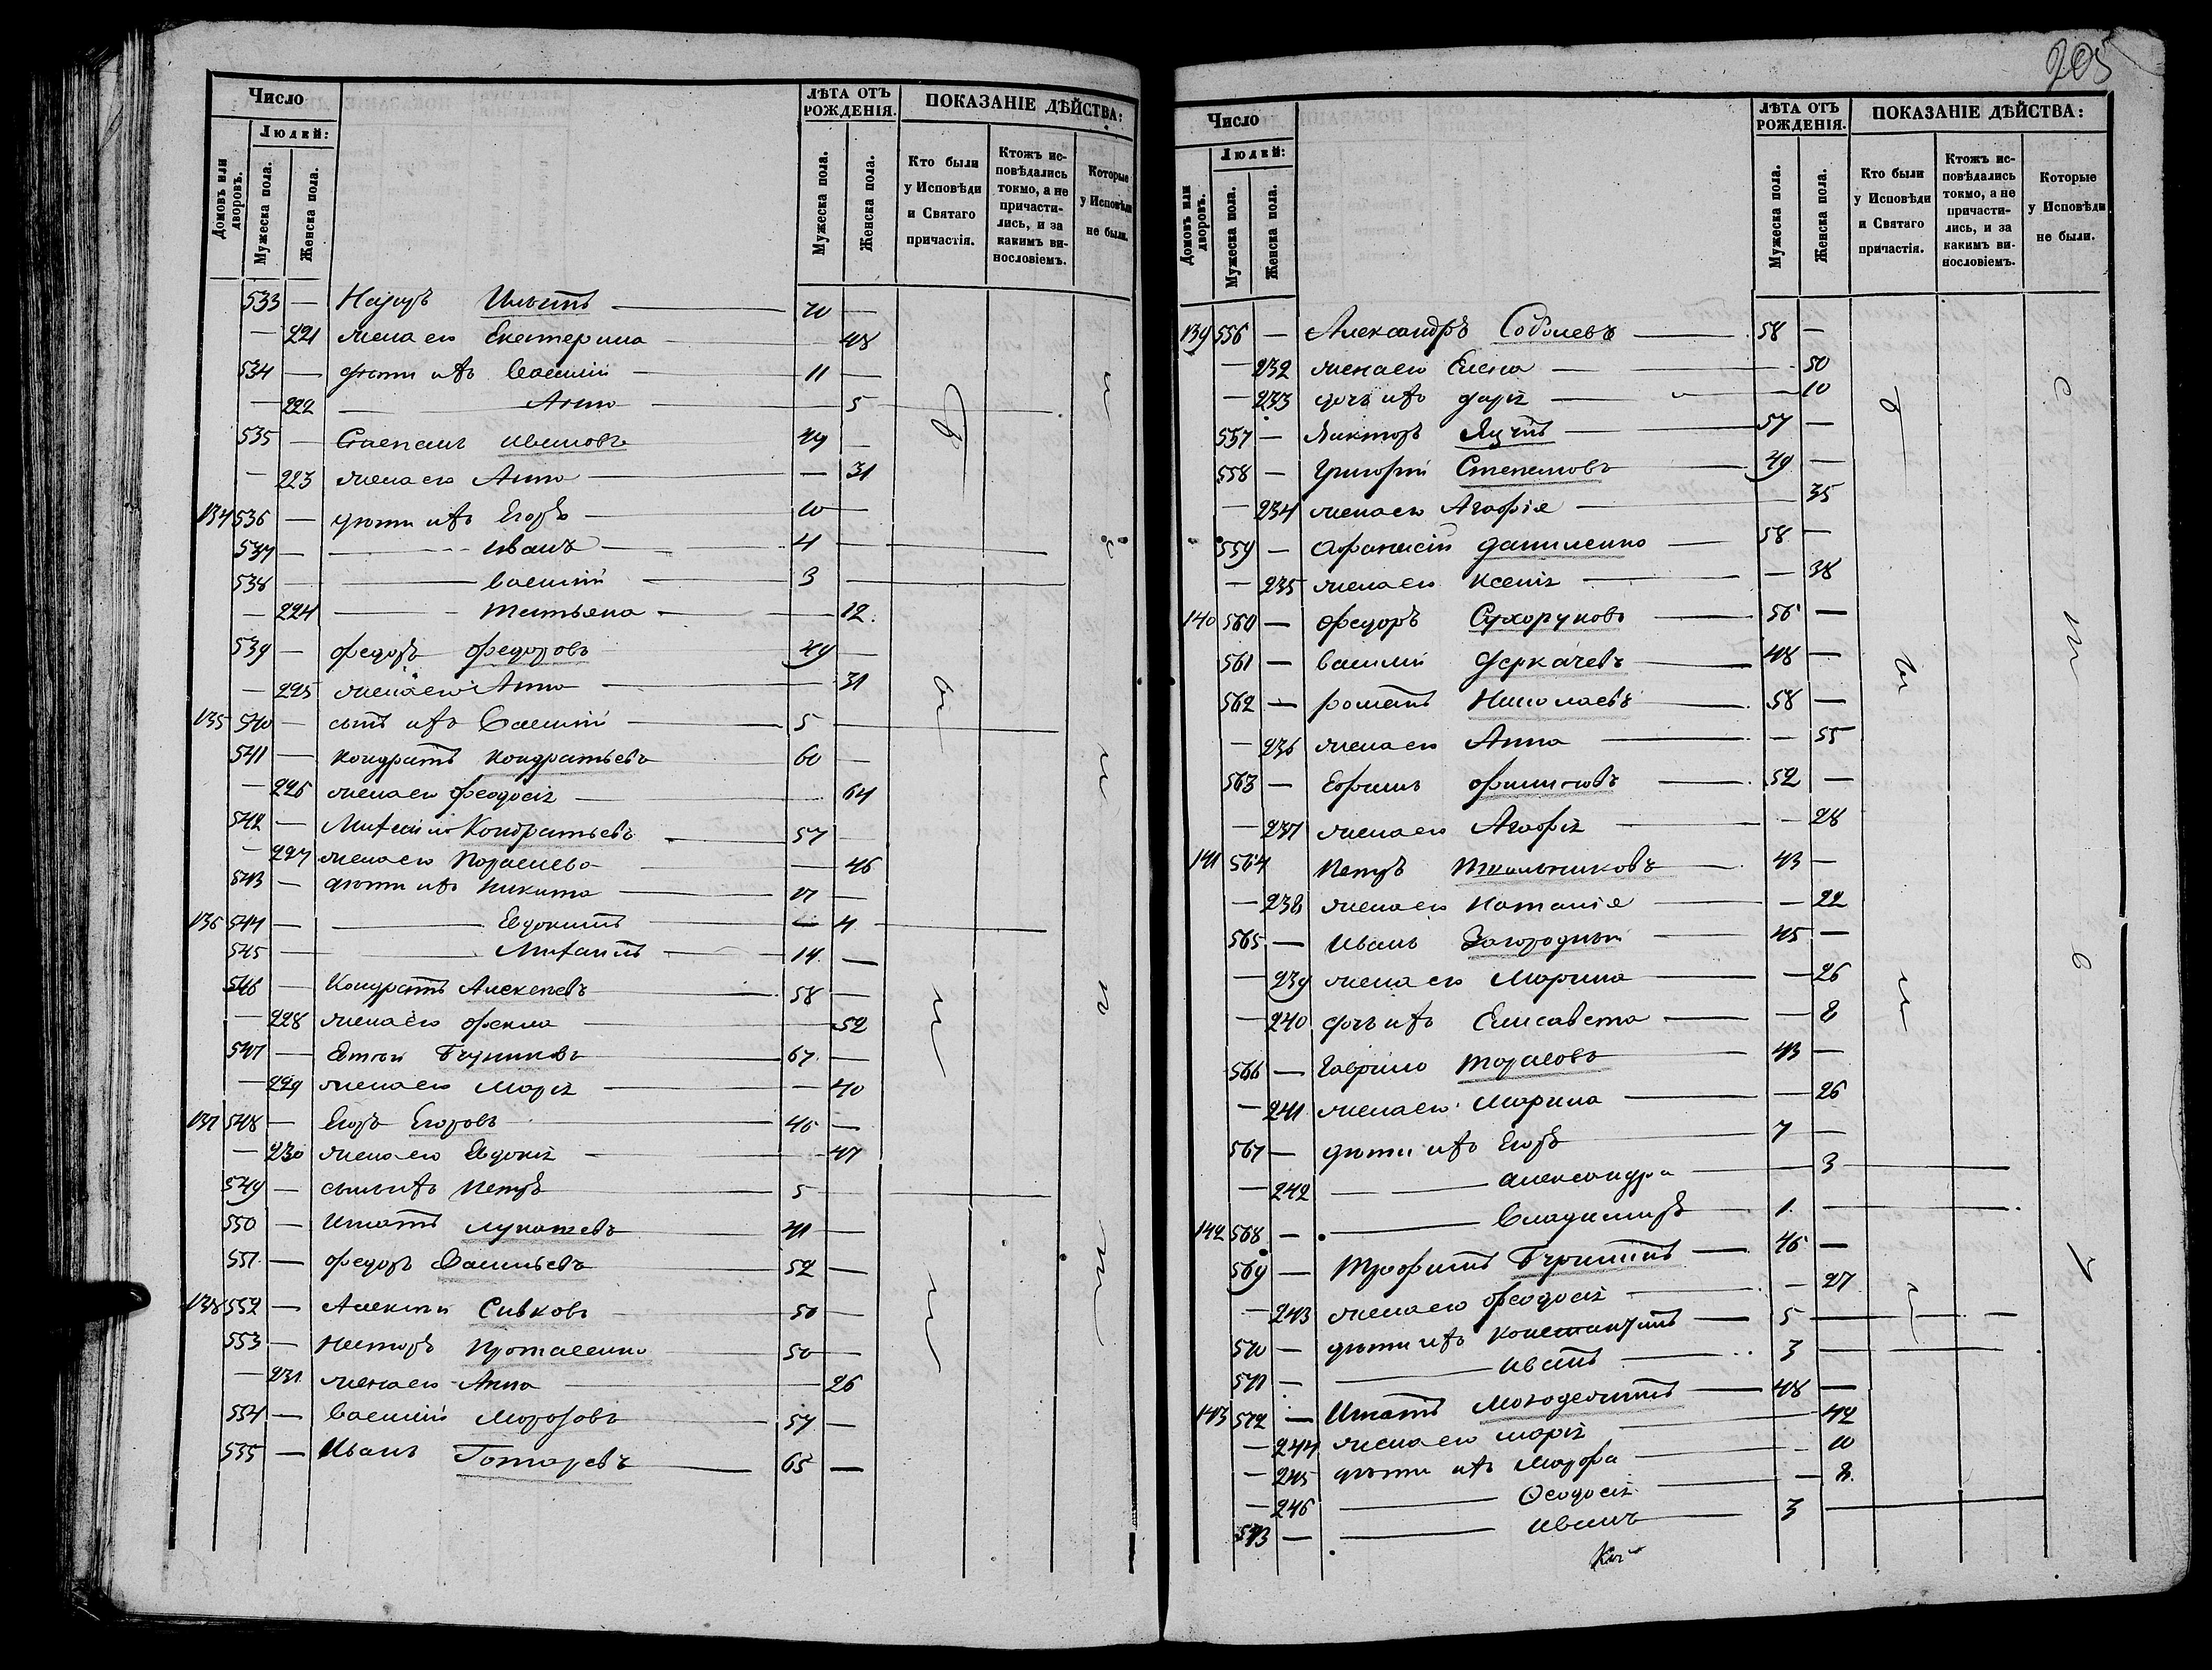 Число
Людей:
Домовъ или дворовъ.
Мужеска пола.
Женска пола.
ЛѢТА ОТЪ
РОЖДЕНІЯ.
Мужеска пола.
Женска пола.
ПОКАЗАНІЕ ДѢЙСТВА:
Кто были
у Исповѣди
и Святаго
причастія.
Ктожъ ис-
повѣдались
токмо, а не
причасти-
лись, и за
какимъ ви-
нословіемъ.
Которые
у Исповѣди
не были.
533 —
— 221 жена его Екатерина — 48
534 — дѣти ихъ Василій — 11 —
— 222 — Анна — 5
535 — Степанъ Ивановъ 49 —
— 223 жена его Анна — 31
134 536 — дѣти ихъ Егоръ — 10 —
537 — — Иванъ — 4 —
538 — — Василій — 3 —
— 224 — Татьяна — 12.
539 — Федоръ Федоровъ 49 —
— 225 жена его Анна — 31
135 540 — сынъ ихъ Василій — 5 —
541 — Кондратъ Кондратьевъ 60 —
— 226 жена его Феодосія — 64
542 — Кондратьевъ 57 —
— 227 жена его — 46
543 — дѣти ихъ Никита — 17 —
136 544 — — Евдокимъ — 4
545 — — Михаилъ — 14 —
546 — Кондратъ Алексеевъ 58 —
— 228 жена его Фекла — 52
547 — 67 —
— 229 жена его Марія — 40
137 548 — Егоръ Егоровъ 46 —
— 230 жена его Евдокія — 47
549 — сынъ ихъ Петръ — 5 —
550 — Игнатъ 41 —
551 — Федоръ Васильевъ 52 —
138 552 — Алексѣй Сивковъ 50 —
553 — Несторъ Протасенко 50 —
— 231 жена его Анна — 26
554 — Василій Морозовъ 57 —
535 — Иванъ 65 —
205
Число
Людей:
Домовъ или дворовъ.
Мужеска пола.
Женска пола.
ЛѢТА ОТЪ
РОЖДЕНІЯ.
Мужеска пола.
Женска пола.
ПОКАЗАНІЕ ДѢЙСТВА:
Кто были
у Исповѣди
и Святаго
причастія.
Ктожъ ис-
повѣдались
токмо, а не
причасти-
лись, и за
какимъ ви-
нословіемъ.
Которые
у Исповѣди
не были.
139 556 — Александръ Соболевъ — 58 —
— 232 жена его Елена — 50
— 233 дочь ихъ Дарія — 10
557 — Викторъ — 57 —
558 — Григорій Степановъ 49 —
— 234 жена его Агафія — 35
559 — Афанасій Даниленко — 58 —
— 235 жена его Ксенія — 38
140 560 — Федоръ Сухоруковъ — 56 —
561 — Василій Деркачевъ — 48 —
562 — Романъ Николаевъ — 58 —
— 236 жена его Анна — 55
563 — Ефимъ Филиповъ — 52 —
— 237 жена его Агафія — 28
141 564 Петръ 43 —
— 238 жена его Наталія — 22
565 — Иванъ Загородный — 45 —
— 239 жена его Марина — 26
— 240 дочь ихъ Елисавета — 8
566 — Гаврило Тарасовъ 43 —
— 241 жена его Марина — 26
567 — дѣти ихъ Егоръ 7 —
— 242 — Александра — 3
142 568 — — Владимиръ 1 —
569 — Трофимъ — 46 —
— 243 жена его Феодосія — 27
570 — дѣти ихъ Константинъ — 5 —
571 — — Иванъ 3 —
143 572 — Игнатъ — 48 —
— 244 жена его Марія — 42
— 245 дѣти ихъ — 10
— 246 — Ѳеодосія — 8.
573 — — Иванъ 3 —